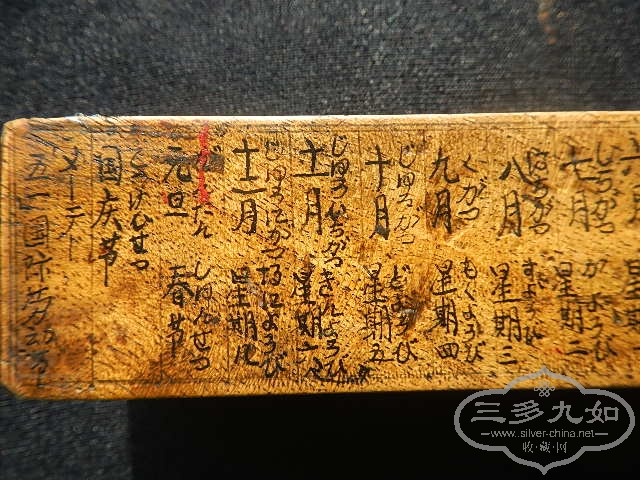 しちがつ かようび
七月 星期二
はちがつ すいようび
八月 星期三
くがつ もくようび
九月 星期四
じゆうがつ どようび
十月 星期五
じゆういちがつ きんようび
十一月 星期六
じゆうにがつ なにようび
十二月 星期几
がんたん しゆんせつ
元旦 春节
国庆节
メーデー
五一国际劳动节
三多九如
www.silver-china.net
收·藏·网